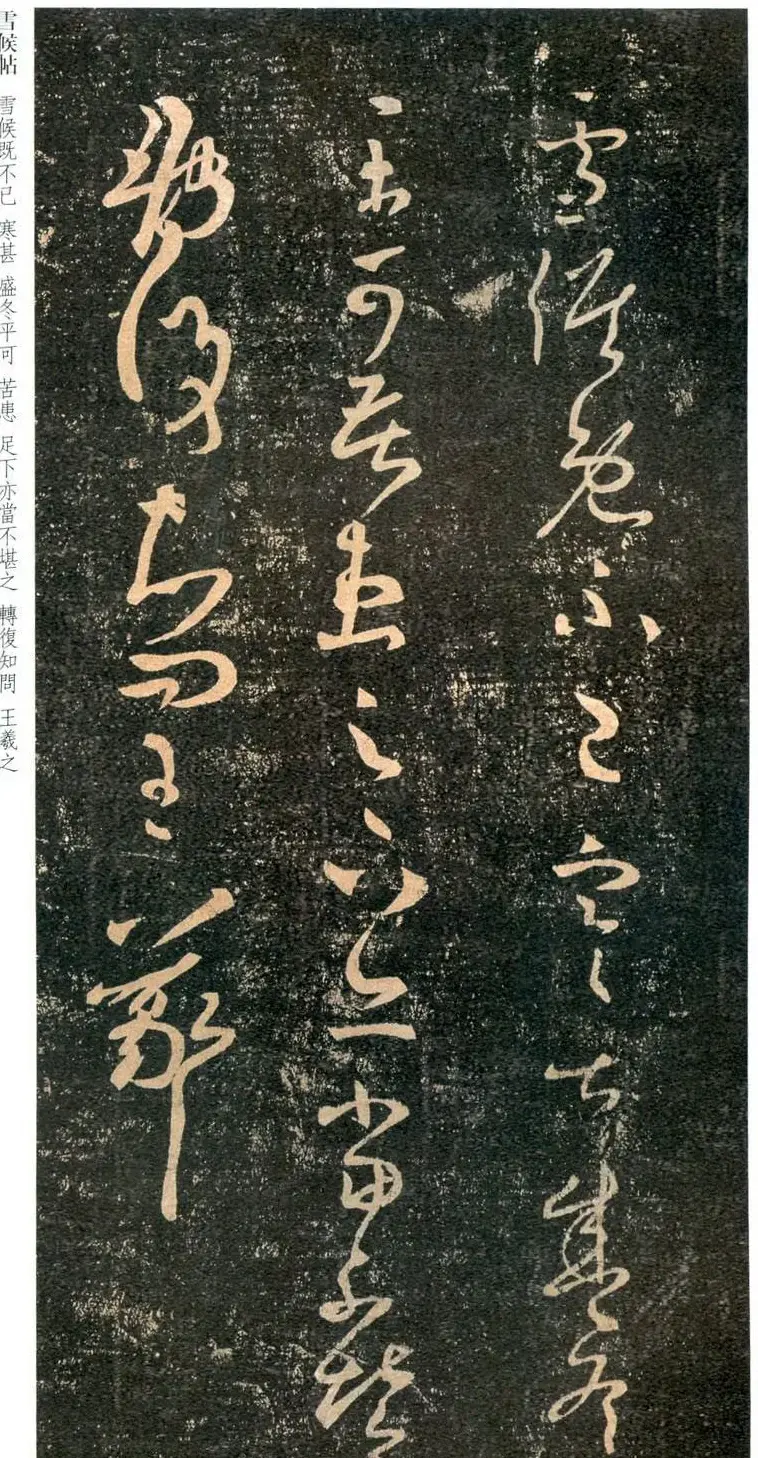 雪候既不已寒甚盛冬
平可苦患足下亦當不堪之
轉復知問王羲之
雪候帖 雪候既不已 寒甚 盛冬平可 苦患 足下亦當不堪之 轉復知問 王羲之